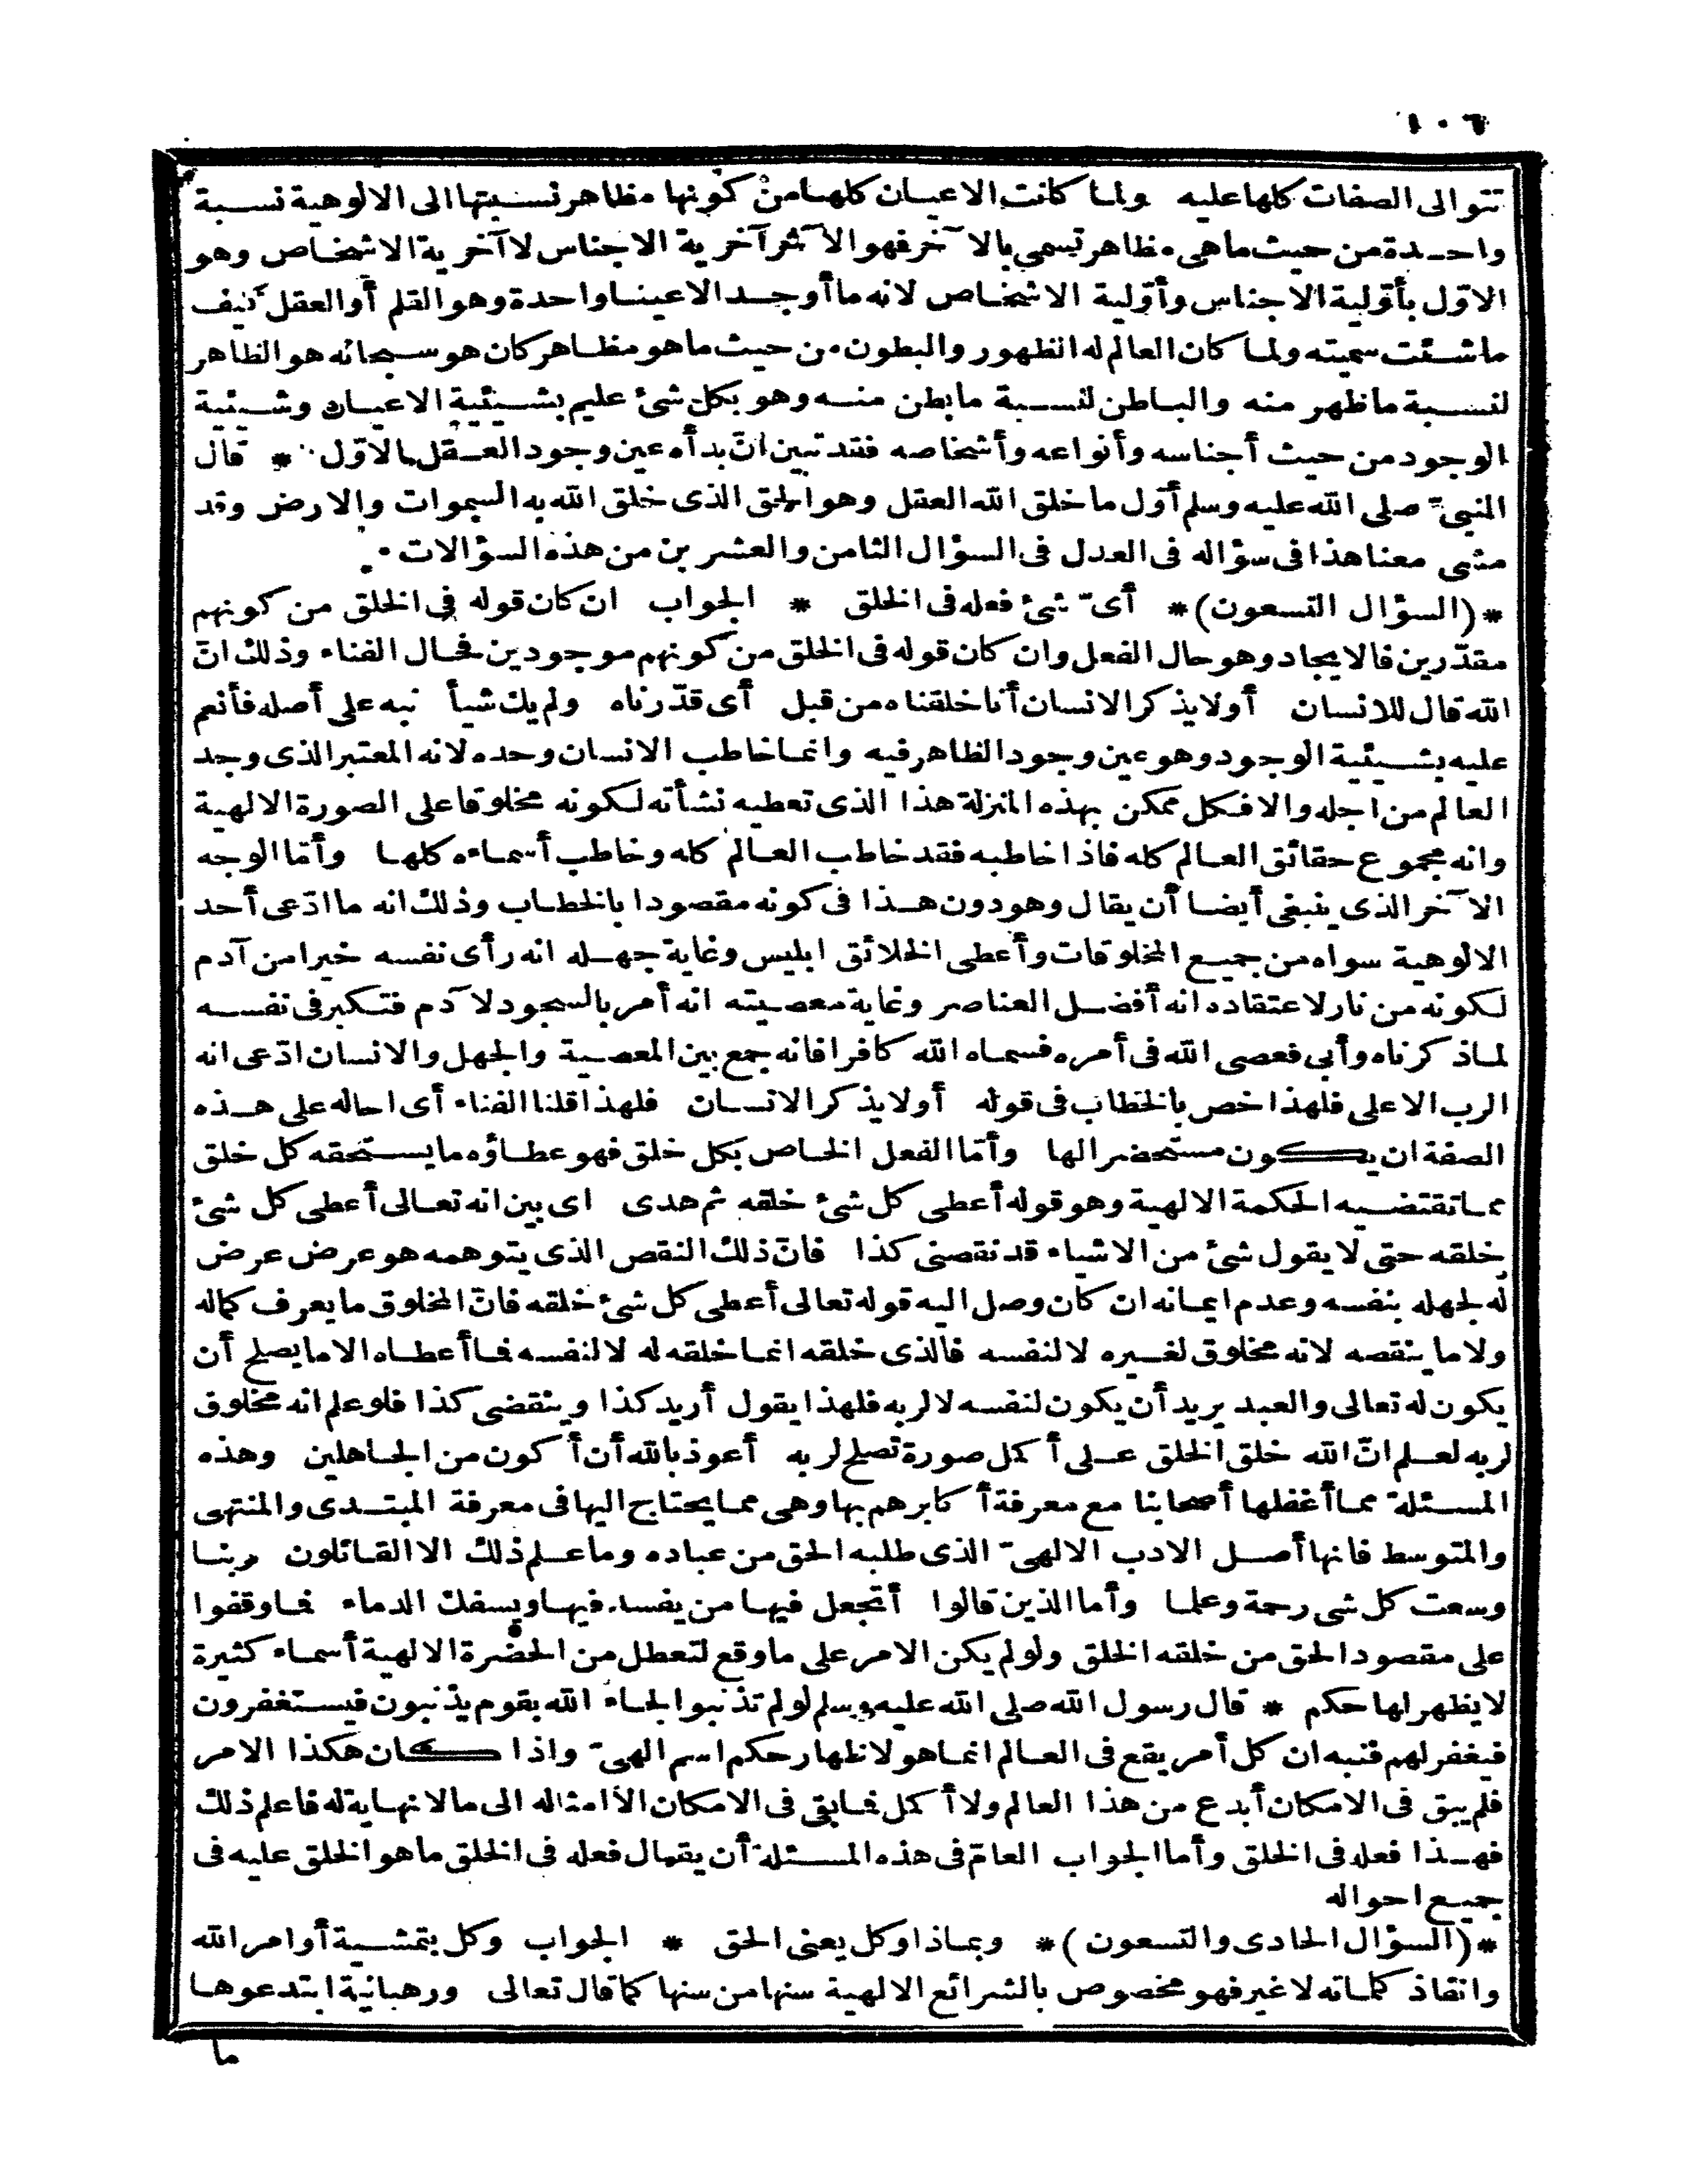 ١٠٦
تتوالى الصفات كلها عليه ولما كانت الاعيان كلها من كونها مظاهر نسبتها الى الالوهية نسبة
واحدة من حيث ما هى مظاهر تسمى بالآخر فهو الآخر آخرية الاجناس لا آخرية الاشخاص وهو
الاوّل بأوّلية الاجناس وأوّلية الاشخاص لانه ما أوجد الا عينا واحدة وهو القلم أو العقل كيف
ما شئت سميته ولما كان العالم له الظهور والبطون من حيث ما هو مظاهر كان هو سبحانه هو الظاهر
لنسبة ما ظهر منه والباطن لنسبة ما بطن منه وهو بكل شئ عليم بشيئية الاعيان وشيئية
الوجود من حيث أجناسه وأنواعه وأشخاصه فقد تبين انّ بدأه عين وجود العقل الاوّل * قال
النبىّ صلى الله عليه وسلم أوّل ما خلق الله العقل وهو الحق الذى خلق الله به السموات والارض وقد
مشى معنا هذا فى سؤاله فى العدل فى السؤال الثامن والعشرين من هذه السؤالات
*(السؤال التسعون)* أىّ شئ فعله فى الخلق * الجواب ان كان قوله فى الخلق من كونهم
مقدّرين فالايجاد وهو حال الفعل وان كان قوله فى الخلق من كونهم موجودين فحال الفناء وذلك انّ
الله قال للانسان أولا يذكر الانسان أنا خلقناه من قبل أى قدّرناه ولم يك شيأ نبه على أصله فأنعم
عليه بشيئية الوجود وهو عين وجود الظاهر فيه وانما خاطب الانسان وحده لانه المعتبر الذى وجد
العالم من اجله والا فكل ممكن بهذه المنزلة هذا الذى تعطيه نشأته لكونه مخلوقا على الصورة الالهية
وانه مجموع حقائق العالم كله فاذا خاطبه فقد خاطب العالم كله وخاطب أسماءه كلها وأمّا الوجه
الآخر الذى ينبغى أيضا أن يقال وهو دون هذا فى كونه مقصودا بالخطاب وذلك انه ما ادّعى أحد
الالوهية سواه من جميع المخلوقات وأعطى الخلائق ابليس وغاية جهله انه رأى نفسه خيرا من آدم
لكونه من نار لاعتقاده انه أفضل العناصر وغاية معصيته انه أمر بالسجود لآدم فتكبر فى نفسه
لما ذكرناه وأبى فعصى الله فى أمره فسماه الله كافرا فانه جمع بين المعصية والجهل والانسان ادّعى انه
الرب الاعلى فلهذا خص بالخطاب فى قوله أولا يذكر الانسان فلهذا قلنا الفناء أى احاله على هذه
الصفة ان يكون مستحضر الها وأمّا الفعل الخاص بكل خلق فهو عطاؤه ما يستحقه كل خلق
مما تقتضيه الحكمة الالهية وهو قوله أعطى كل شئ خلقه ثم هدى اى بين انه تعالى أعطى كل شئ
خلقه حتى لا يقول شئ من الاشياء قد نقصنى كذا فانّ ذلك النقص الذى يتوهمه هو عرض عرض
له لجهله بنفسه وعدم ايمانه ان كان وصل اليه قوله تعالى أعطى كل شئ خلقه فانّ المخلوق ما يعرف كماله
ولا ما ينقصه لانه مخلوق لغيره لا لنفسه فالذى خلقه انما خلقه له لا لنفسه فما أعطاه الا ما يصلح أن
يكون له تعالى والعبد يريد أن يكون لنفسه لا لربه فلهذا يقول أريد كذا وينقضى كذا فلو علم انه مخلوق
لربه لعلم انّ الله خلق الخلق على أكمل صورة تصلح لربه أعوذ بالله أن أكون من الجاهلين وهذه
المسئلة مما أغفلها أصحابنا مع معرفة أكابرهم بها وهى مما يحتاج اليها فى معرفة المبتدى والمنتهى
والمتوسط فانها أصل الادب الالهىّ الذى طلبه الحق من عباده وما علم ذلك الا القائلون ربنا
وسعت كل شى رحمة وعلما وأما الذين قالوا أتجعل فيها من يفسد فيها ويسفك الدماء فما وقفوا
على مقصود الحق من خلقه الخلق ولو لم يكن الامر على ما وقع لتعطل من الحضرة الالهية أسماء كثيرة
لا يظهر لها حكم * قال رسول الله صلى الله عليه وسلم لو لم تذنبوا لجاء الله بقوم يذنبون فيستغفرون
فيغفر لهم فنبه ان كل أمر يقع فى العالم انما هو لاظهار حكم اسم الهىّ واذا كان هكذا الامر
فلم يبق فى الامكان أبدع من هذا العالم ولا أكمل فما بقى فى الامكان الا امثاله الى ما لا نهاية له فاعلم ذلك
فهذا فعله فى الخلق وأما الجواب العامّ فى هذه المسئلة أن يقال فعله فى الخلق ما هو الخلق عليه فى
جميع احواله
*(السؤال الحادى والتسعون)* وبماذا وكل يعنى الحق * الجواب وكل بتمشية أوامر الله
وانفاذ كلماته لا غير فهو مخصوص بالشرائع الالهية سنها من سنها كما قال تعالى ورهبانية ابتدعوها
ما